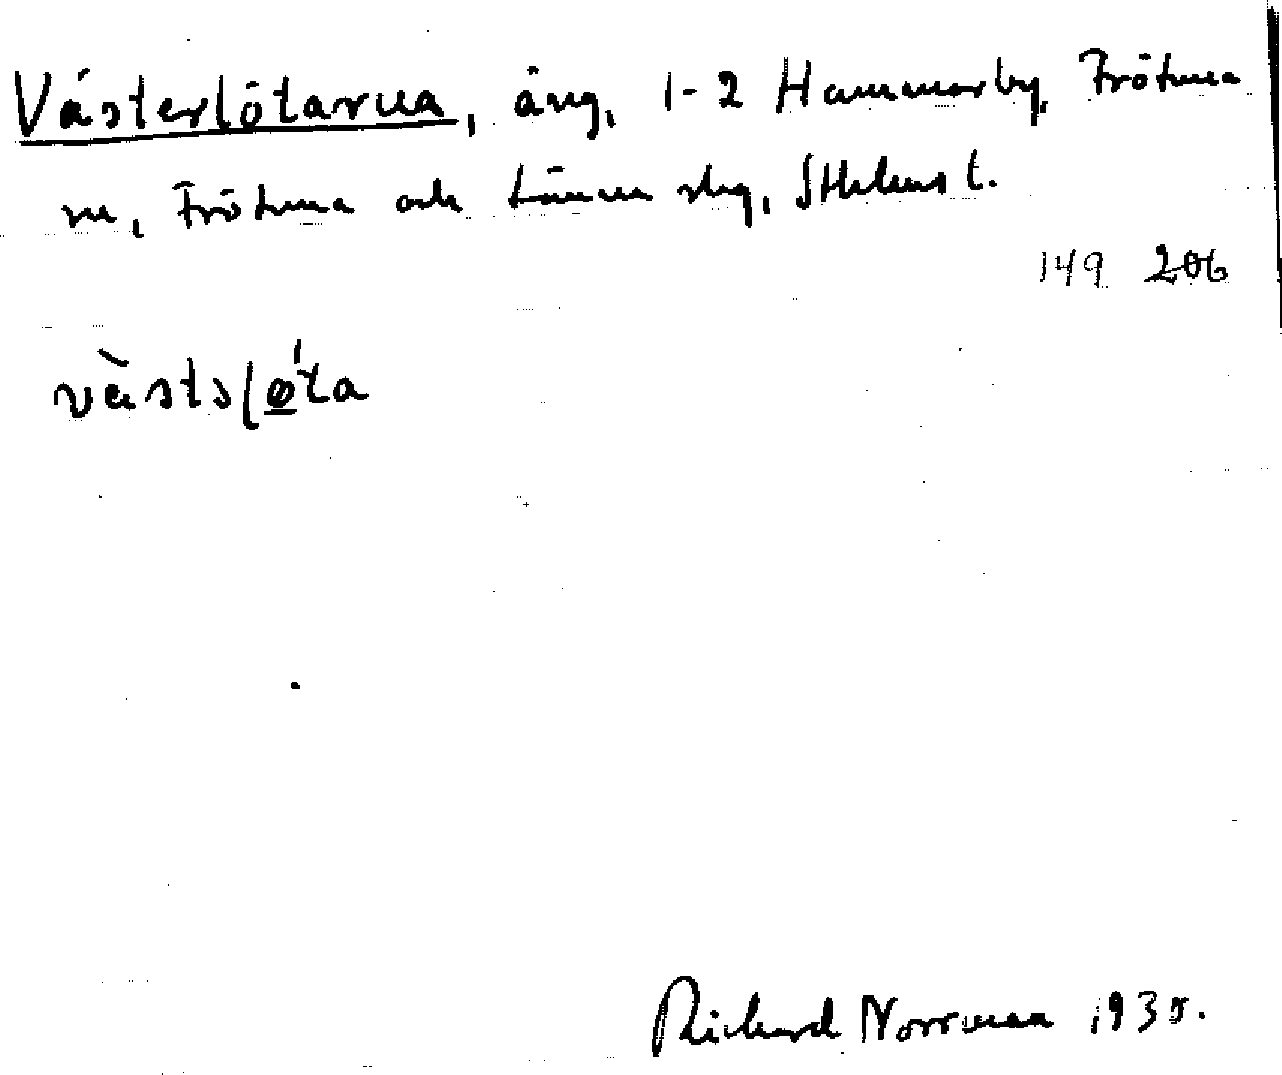 Västerlötarna, äng, 1-2 Hammarby, Frötuna
sn, Frötuna och Länna skg, Sthlms l.
149 206
vä̀stsḷø̱'ta
Richard Norrman 1935.